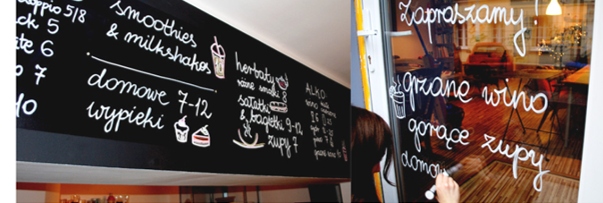 doppio 5/8
5
6
7
10
smoothies
& milkshakes
domowe 7-12
wypieki
herbaty
różne smaki
sałatki
& bagietki 9-12
zupy 7
ALKO
Zapraszamy!
grzane wino
gorące zupy
domow